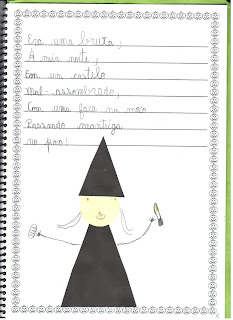 Era uma bruxa,
À meia noite,
Em um castelo
Mal-assombrado,
Com uma faca na mão
Passando manteiga
no pão!